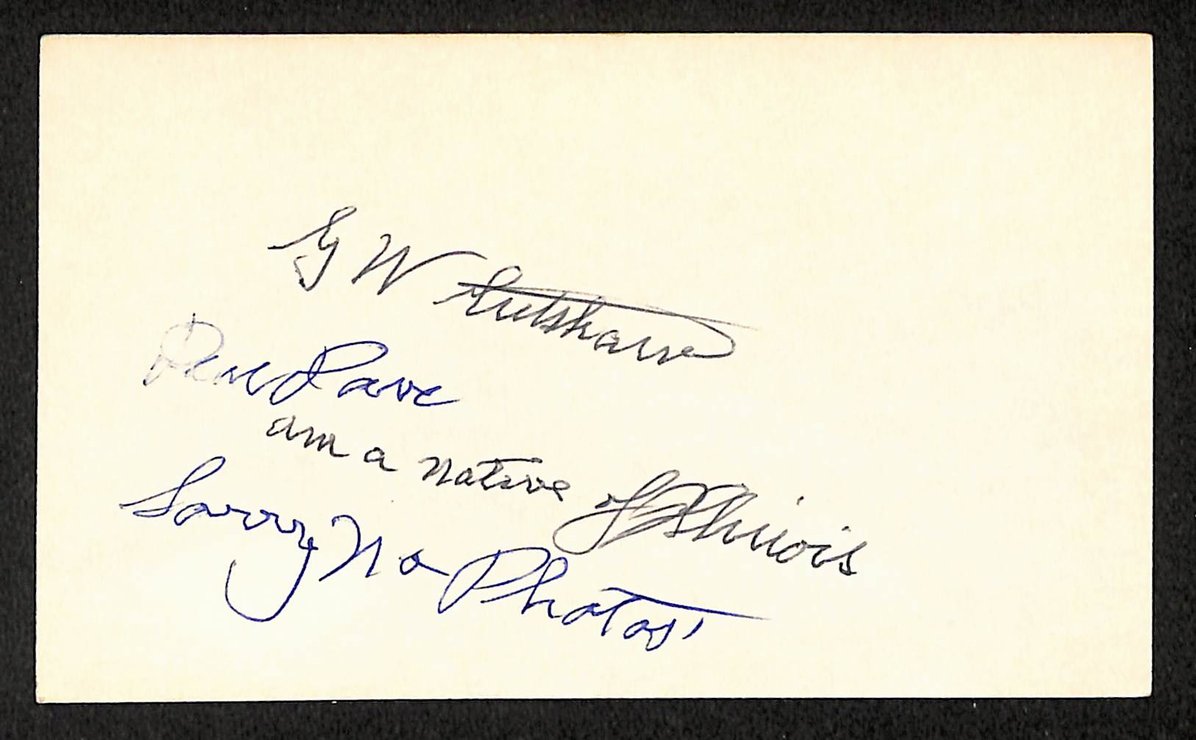 G W Cutshaw
Dear Dave
am a native of Illinois
Sorry No Photos